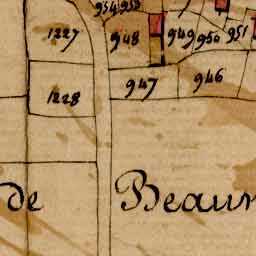 954 953
1227 948 949 950 951
947 946
1228
de Beaur